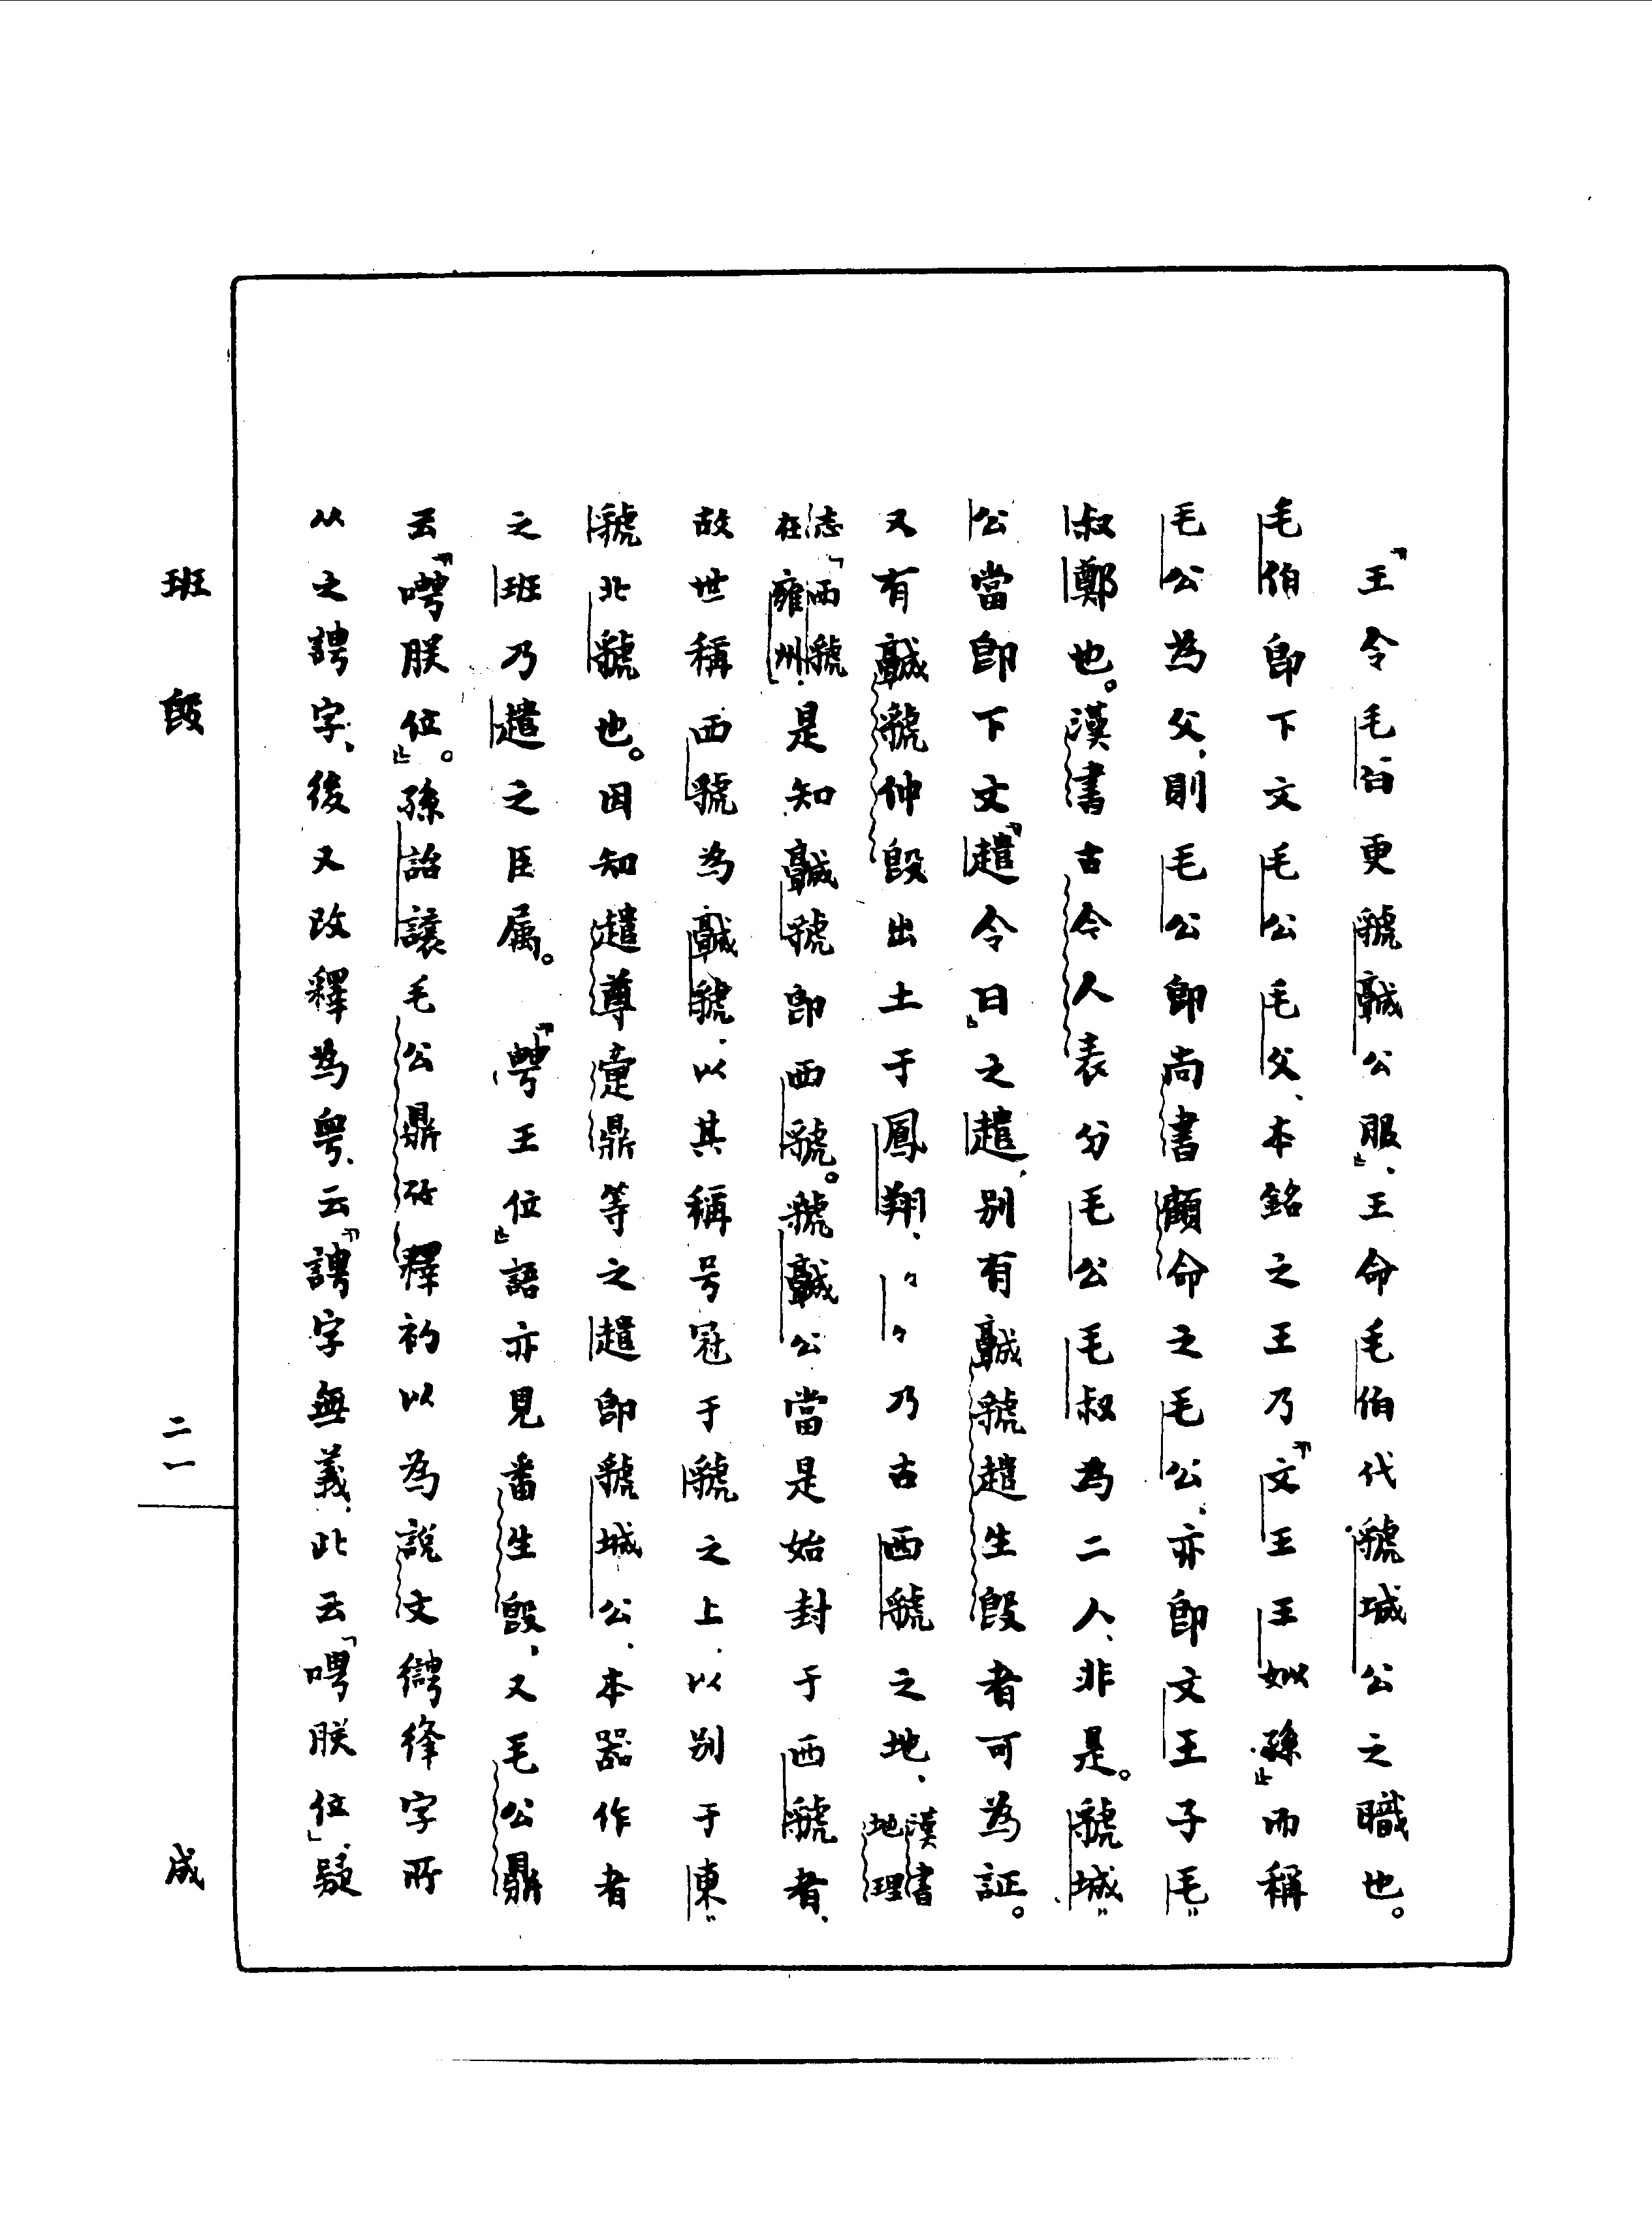 『王令毛白更虢𩫨公服』，王命毛伯代虢城公之職也。
毛伯即下文毛公毛父、本銘之王乃『文王王姒孫』而稱
毛公為父，則毛公即尚書顧命之毛公，亦即文王子毛
叔鄭也。漢書古今人表分毛公毛叔為二人、非是。虢城
公當即下文『趞令曰』之趞，別有𩫨虢趞生𣪘者可為証。
又有𩫨虢仲𣪘出土于鳳翔，々々乃古西虢之地，漢書地理
志「西虢在雍州」。是知𩫨虢即西虢。虢𩫨公當是始封于西虢者、
故世稱西虢為𩫨虢，以其稱号冠于虢之上，以別于東
虢北虢也。因知趞尊疐鼎等之趞即虢城公，本器作者
之班乃趞之臣属。『甹王位』語亦見番生𣪘，又毛公鼎
云『噂朕位』。孫詒讓毛公鼎攷釋初以為說文𢕾夆字所
从之䛣字、後又改釋為甹、云『䛣字無義，此云「嘚朕位」，疑
班𣪘
二一
成